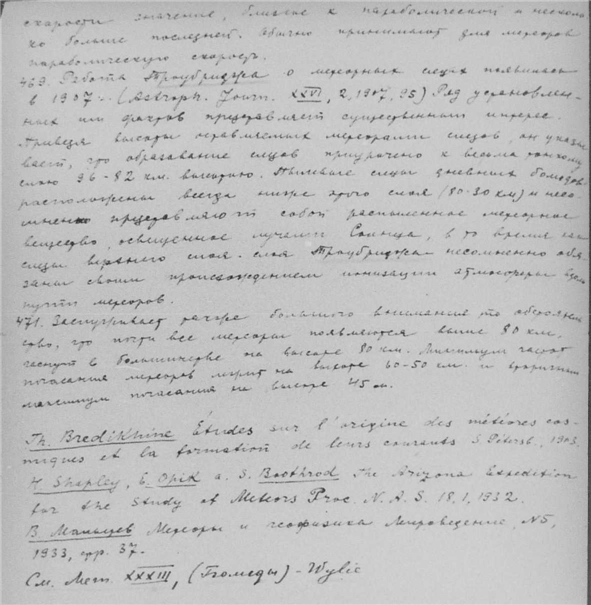 скорости значение, близкое к параболической и несколь
ко больше последней. Обычно принимают для метеоров
параболическую скорость.
469. Работа Троубриджа о метеорных следах появилась
в 1907 г. (Astroph. Journ. XXVI, 2, 1907, 95) Ряд установлен-
ных им фактов представляет существенный интерес.
Приведя высоты оставляемых метеорами следов, он указы
вает, что образование следов приурочено к весьма тонкому
слою 96-82 км. высотою. Пылевые следы дневных болидов
расположены всегда ниже этого слоя (80-30 км) и несо-
мненно представляют собой распыленное метеорное
вещество, освещенное лучами Солнца, в то время как
следы верхнего слоя - слоя Троубриджа несомненно обя-
заны своим происхождением ионизации атмосферы
пути метеоров.
471. Заслуживает также большого внимания то обстоятель
ство, что почти все метеоры появляются выше 80 км,
гаснут в большинстве на высоте 80 км. Минимум
погасания метеоров лежит на высоте 60-50 км. и вторичный
максимум погасания на высоте 45 км.
Th. Bredikhine Études sur l'origine des météores cos-
miques et la formation de leurs courants S. Petersb., 1903.
H. Shapley, E. Öpik a. S. Boothrod The Arizona Expedition
for the Study of Meteors Proc. N. A. S. 18, 1, 1932.
В. Мальцев Метеоры и геофизика Мироведение, N5,
1933, стр. 37.
См. Мет. XXXIII, (Гтомеды) - Wylie